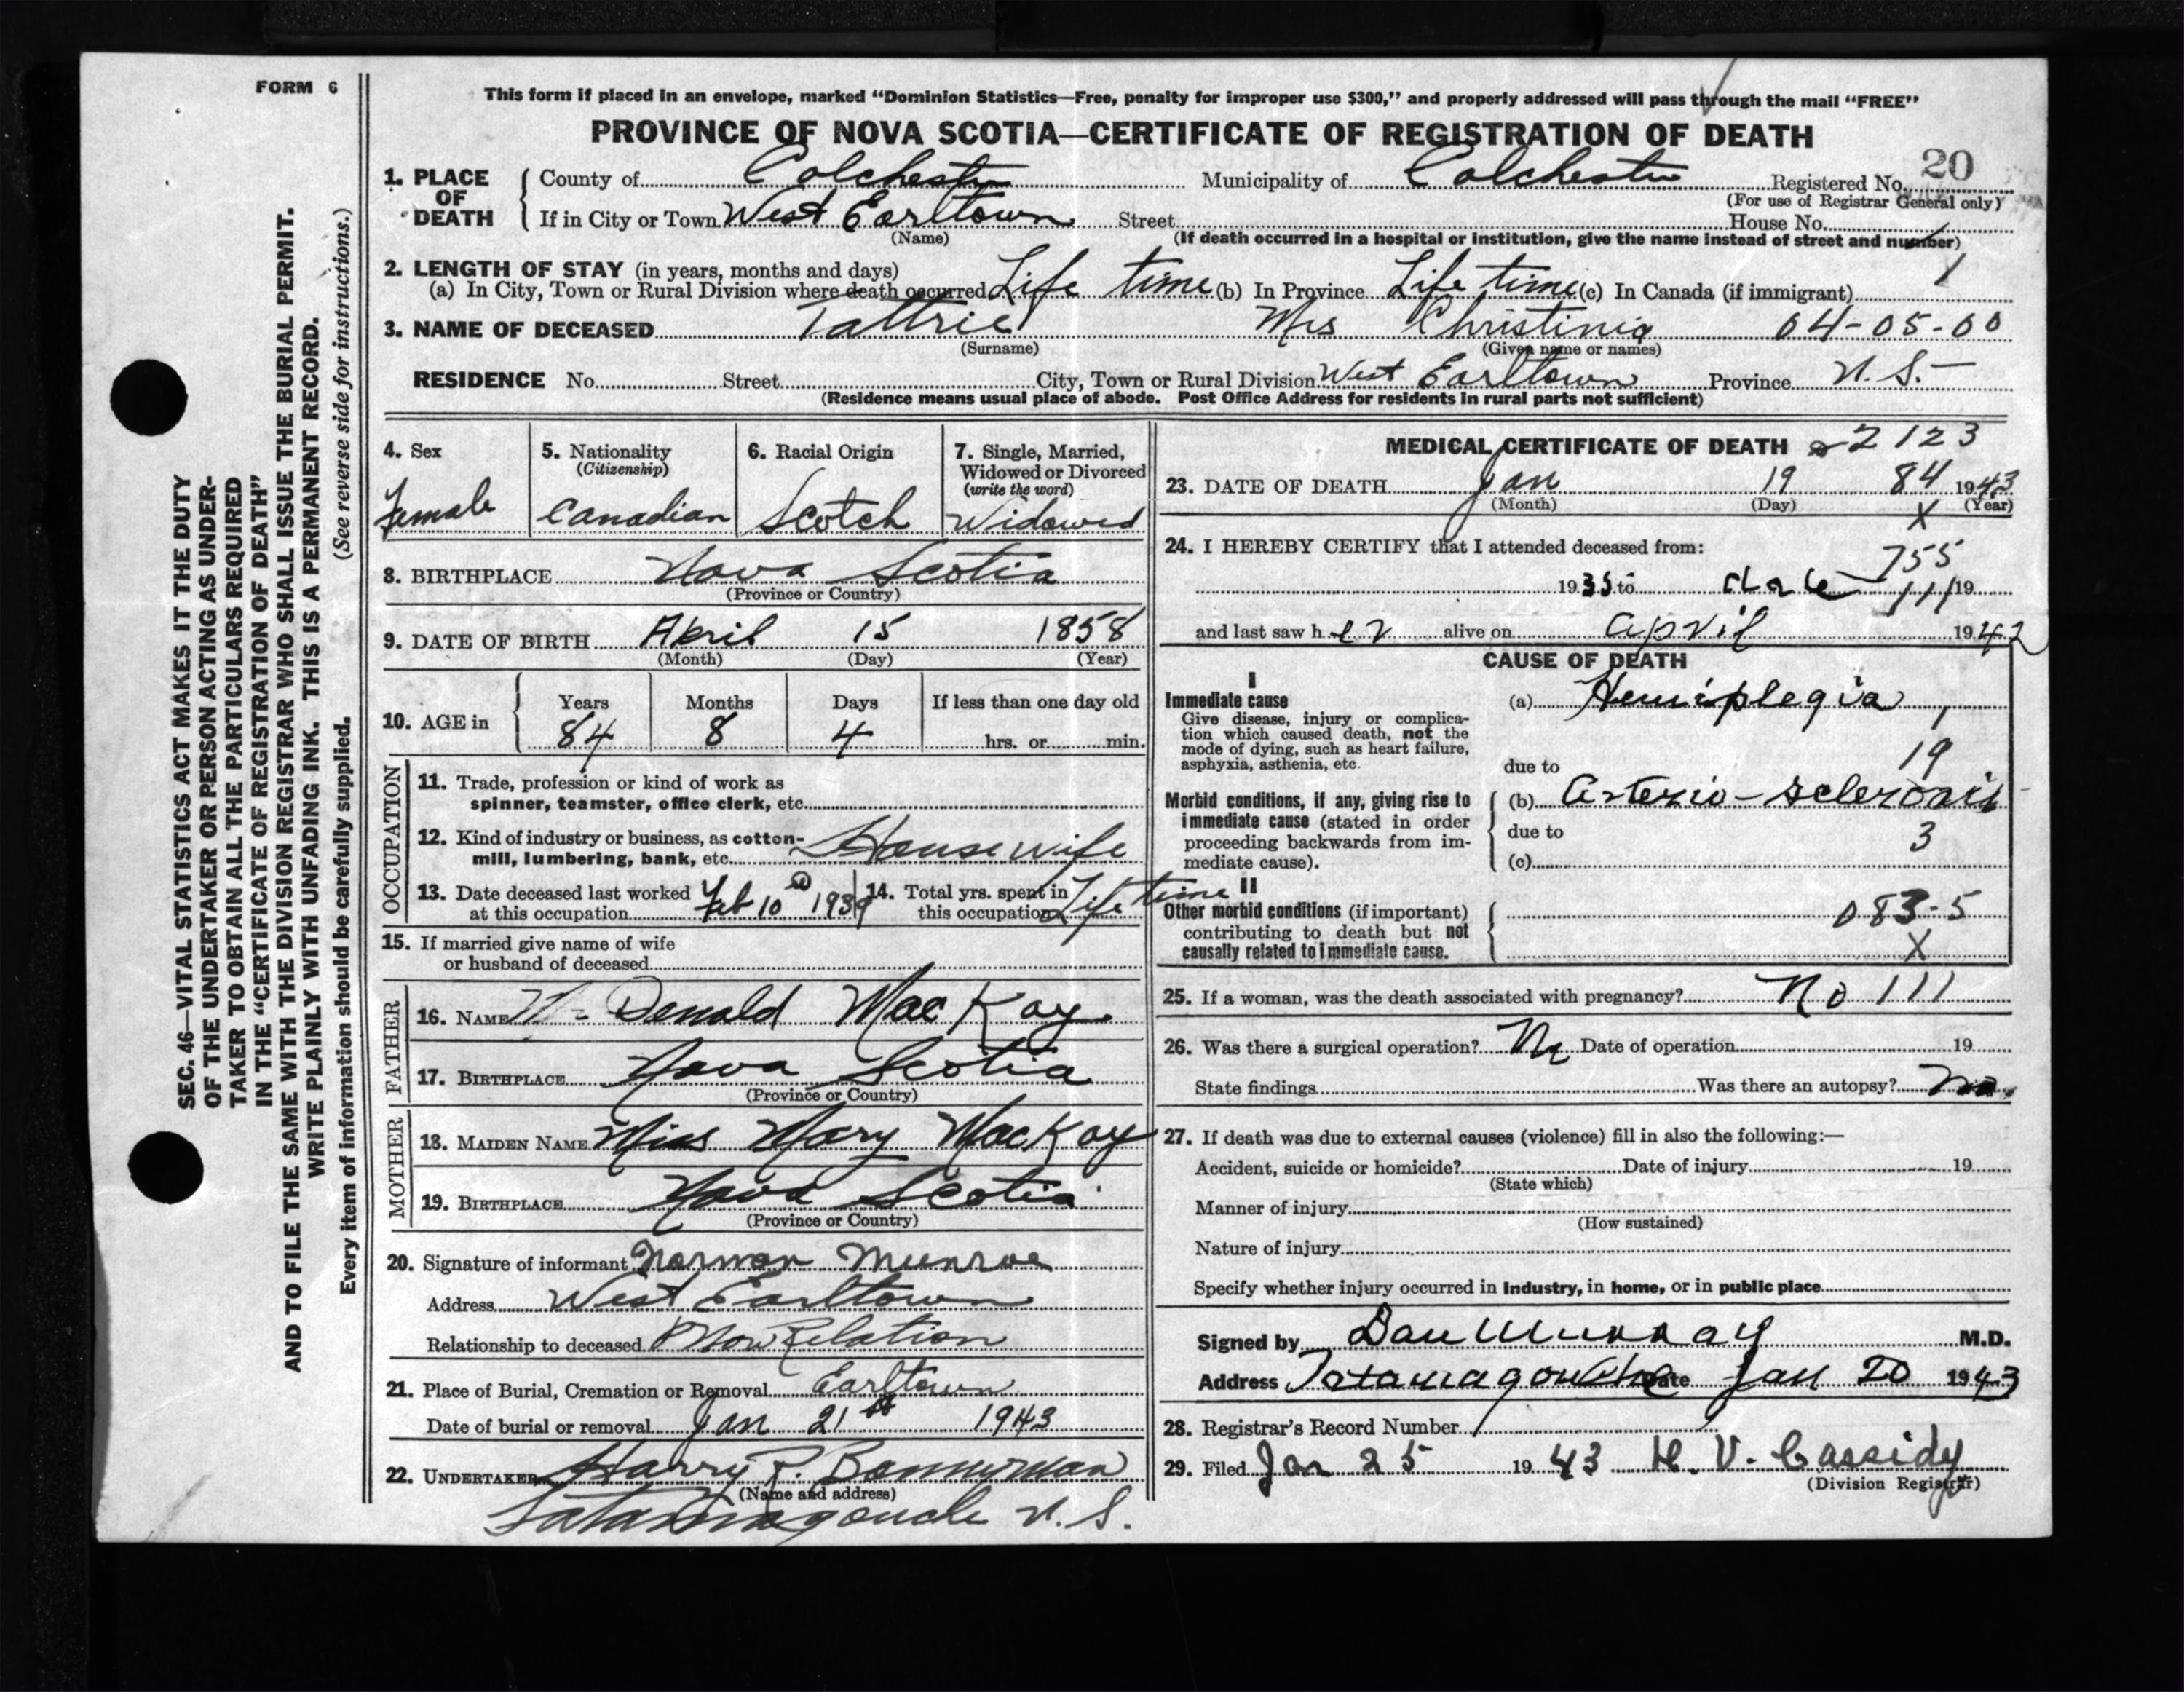 FORM 6
This form if placed in an envelope, marked “Dominion Statistics—Free, penalty for improper use $300,” and properly addressed will pass through the mail “FREE”
PROVINCE OF NOVA SCOTIA—CERTIFICATE OF REGISTRATION OF DEATH
1. PLACE OF DEATH County of Colchester Municipality of Colchester Registered No. 20
(For use of Registrar General only)
If in City or Town West Earltown Street House No.
(Name) (If death occurred in a hospital or institution, give the name instead of street and number)
2. LENGTH OF STAY (in years, months and days) 1
(a) In City, Town or Rural Division where death occurred Life time (b) In Province Life time (c) In Canada (if immigrant)
3. NAME OF DECEASED Tattrie Mrs Christinia 04-05-00
(Surname) (Given name or names)
RESIDENCE No. Street City, Town or Rural Division West Earltown Province N.S.—
(Residence means usual place of abode. Post Office Address for residents in rural parts not sufficient)
4. Sex
Female
5. Nationality
(Citizenship)
Canadian
6. Racial Origin
Scotch
7. Single, Married,
Widowed or Divorced
(write the word)
Widowed
8. BIRTHPLACE Nova Scotia
(Province or Country)
9. DATE OF BIRTH April 15 1858
(Month) (Day) (Year)
10. AGE in Years Months Days If less than one day old
84 8 4 hrs. or min.
OCCUPATION
11. Trade, profession or kind of work as
spinner, teamster, office clerk, etc.
12. Kind of industry or business, as cotton-
mill, lumbering, bank, etc. Housewife
13. Date deceased last worked
at this occupation Feb 10 1939
14. Total yrs. spent in
this occupation Life time
15. If married give name of wife
or husband of deceased
FATHER
16. NAME Mr Donald MacKay
17. BIRTHPLACE Nova Scotia
(Province or Country)
MOTHER
18. MAIDEN NAME Miss Mary MacKay
19. BIRTHPLACE Nova Scotia
(Province or Country)
20. Signature of informant Norman Munroe
Address West Earltown
Relationship to deceased Relation
21. Place of Burial, Cremation or Removal Earltown
Date of burial or removal Jan 21st 1943
22. UNDERTAKER Harry
(Name and address)
N.S.
MEDICAL CERTIFICATE OF DEATH 2123
23. DATE OF DEATH Jan 19 84 1943
(Month) (Day) X (Year)
24. I HEREBY CERTIFY that I attended deceased from:
755
1935 to date 111 19
and last saw her alive on April 1942
CAUSE OF DEATH
I
Immediate cause
Give disease, injury or complica-
tion which caused death, not the
mode of dying, such as heart failure,
asphyxia, asthenia, etc.
(a) Hemiplegia 1
due to 19
Morbid conditions, if any, giving rise to
immediate cause (stated in order
proceeding backwards from im-
mediate cause).
(b) Arterio-sclerosis
due to 3
(c)
II
Other morbid conditions (if important)
contributing to death but not
causally related to immediate cause.
083-5
X
25. If a woman, was the death associated with pregnancy? No 111
26. Was there a surgical operation? No Date of operation 19
State findings Was there an autopsy? No.
27. If death was due to external causes (violence) fill in also the following:—
Accident, suicide or homicide? Date of injury 19
(State which)
Manner of injury
(How sustained)
Nature of injury
Specify whether injury occurred in industry, in home, or in public place
Signed by Dan Murray M.D.
Address Tatamagouche Date Jan 20 1943
28. Registrar's Record Number 1
29. Filed Jan 25 1943 H. V. Cassidy
(Division Registrar)
SEC. 46—VITAL STATISTICS ACT MAKES IT THE DUTY
OF THE UNDERTAKER OR PERSON ACTING AS UNDER-
TAKER TO OBTAIN ALL THE PARTICULARS REQUIRED
IN THE “CERTIFICATE OF REGISTRATION OF DEATH”
AND TO FILE THE SAME WITH THE DIVISION REGISTRAR WHO SHALL ISSUE THE BURIAL PERMIT.
WRITE PLAINLY WITH UNFADING INK. THIS IS A PERMANENT RECORD.
Every item of information should be carefully supplied. (See reverse side for instructions.)